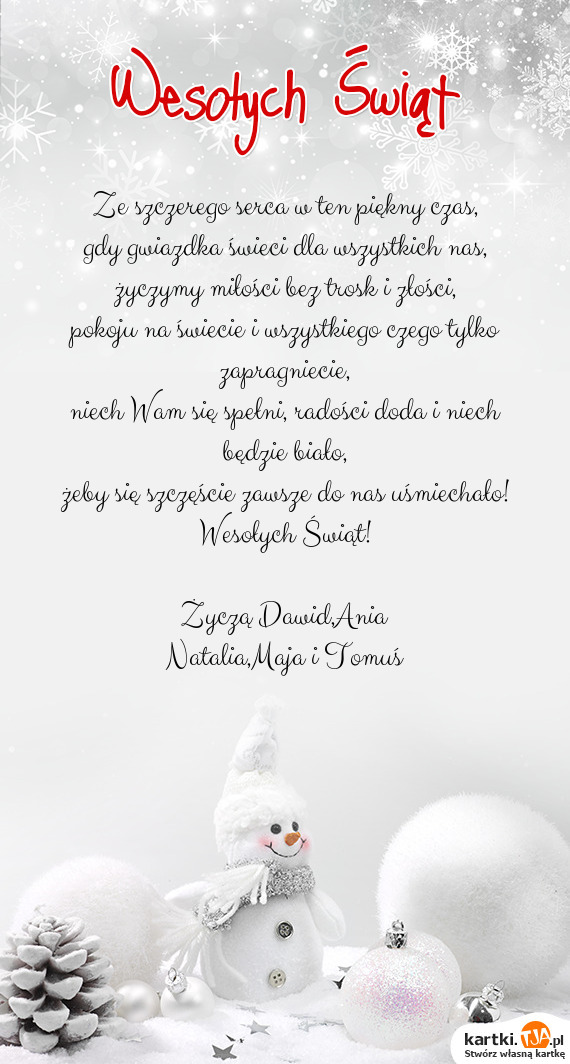 Wesołych Świąt
Ze szczerego serca w ten piękny czas,
gdy gwiazdka świeci dla wszystkich nas,
życzymy miłości bez trosk i złości,
pokoju na świecie i wszystkiego czego tylko
zapragniecie,
niech Wam się spełni, radości doda i niech
będzie biało,
żeby się szczęście zawsze do nas uśmiechało!
Wesołych Świąt!
Życzą Dawid,Ania
Natalia,Maja i Tomuś
kartki.TJA.pl
Stwórz własną kartkę